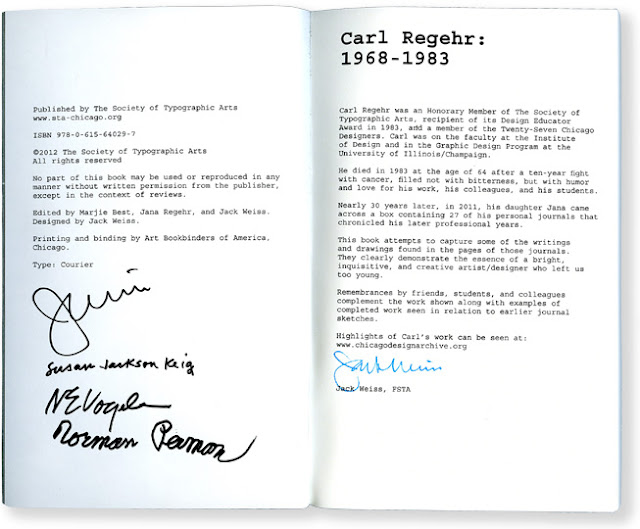 Published by The Society of Typographic Arts
www.sta-chicago.org
ISBN 978-0-615-64029-7
©2012 The Society of Typographic Arts
All rights reserved
No part of this book may be used or reproduced in any
manner without written permission from the publisher,
except in the context of reviews.
Edited by Marjie Best, Jana Regehr, and Jack Weiss.
Designed by Jack Weiss.
Printing and binding by Art Bookbinders of America,
Chicago.
Type: Courier
Susan Jackson Keig
Norman Perman
Carl Regehr:
1968-1983
Carl Regehr was an Honorary Member of The Society of
Typographic Arts, recipient of its Design Educator
Award in 1983, add a member of the Twenty-Seven Chicago
Designers. Carl was on the faculty at the Institute
of Design and in the Graphic Design Program at the
University of Illinois/Champaign.
He died in 1983 at the age of 64 after a ten-year fight
with cancer, filled not with bitterness, but with humor
and love for his work, his colleagues, and his students.
Nearly 30 years later, in 2011, his daughter Jana came
across a box containing 27 of his personal journals that
chronicled his later professional years.
This book attempts to capture some of the writings
and drawings found in the pages of those journals.
They clearly demonstrate the essence of a bright,
inquisitive, and creative artist/designer who left us
too young.
Remembrances by friends, students, and colleagues
complement the work shown along with examples of
completed work seen in relation to earlier journal
sketches.
Highlights of Carl's work can be seen at:
www.chicagodesignarchive.org
Jack Weiss, FSTA